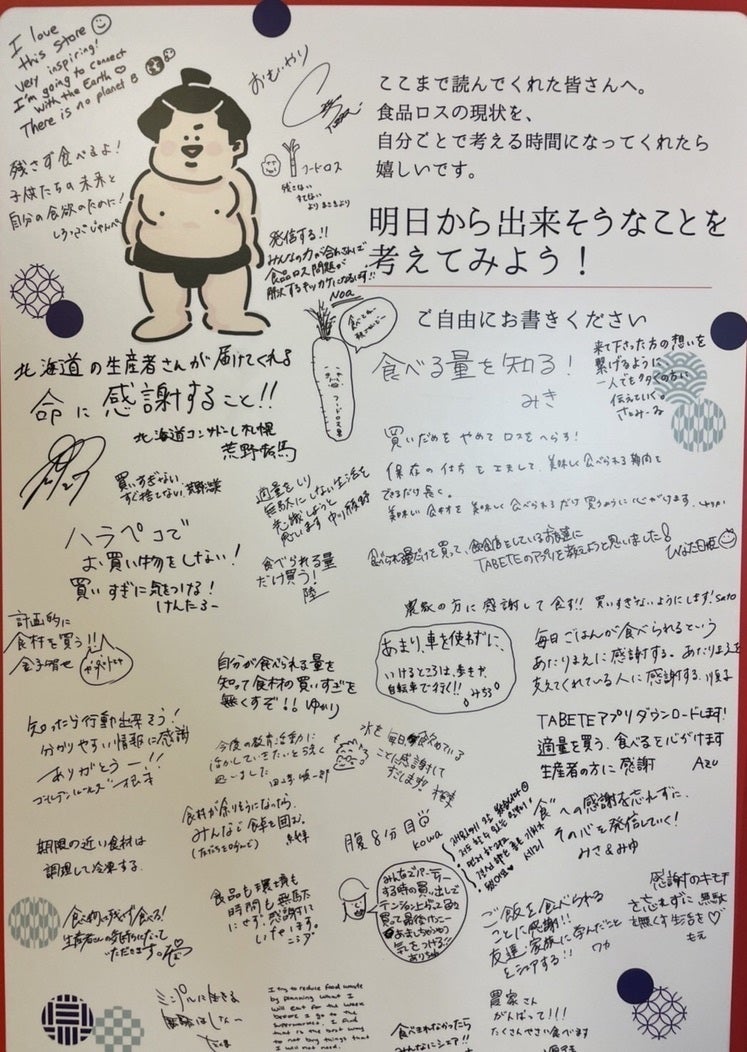 I love
this store
very inspiring!
I'm going to connect
with the Earth ♡
There is no planet B
おもいやり
ここまで読んでくれた皆さんへ。
食品ロスの現状を、
自分ごとで考える時間になってくれたら
嬉しいです。
明日から出来そうなことを
考えてみよう！
ご自由にお書きください
残さず食べるよ！
子供たちの未来と
自分の食欲のために！
フードロス
残さない
すてない
発信する!!
みんなの力が合わさって
食品ロス問題が
解決するキッカケになるはず!!
Noa
フードロス
北海道の生産者さんが届けてくれる
命に感謝すること!!
北海道コンサドーレ札幌
荒野拓馬
食べる量を知る！
みき
来て下さった方の想いを
繋げるように
一人でも多くの方に
伝えていく。
買いだめをやめてロスをへらす！
保存の仕方を工夫して、美味しく食べられる期間を
できるだけ長く。
美味しい食材を美味しく食べられるだけ買うように心がけます。
買いすぎない
すぐ捨てない
適量をしり
無駄にしない生活を
意識しようと
思います
ハラペコで
お買い物をしない！
買いすぎに気をつける！
けんたろー
食べられる量
だけ買う！
陸
食べられる量だけを買って、飲食店をしている友達に
TABETEのアプリを教えようと思いました！
農家の方に感謝して食す!! 買いすぎないようにします! sato
計画的に
食材を買う!!
自分が食べられる量を
知って食材の買いすぎを
無くすぞ!! ゆかり
あまり、車を使わずに、
いけるところは、歩きや、
自転車で行く!!
毎日ごはんが食べられるという
あたりまえに感謝する。あたりまえを
支えてくれている人に感謝する。
知ったら行動出来そう！
分かりやすい情報に感謝
ありがとうー!!
今後の教育活動に
活かしていきたいと強く
思いました
水を毎日飲めている
ことに感謝して
すごします!!
TABETEアプリダウンロードします!
適量を買う、食べるを心がけます
生産者の方に感謝 Azu
期限の近い食材は
調理して冷凍する。
食材が余りそうになったら、
みんなで食卓を囲む。
腹8分目
kowa
食への感謝を忘れずに、
その心を発信していく！
みさ＆みゆ
食べ物は残さず食べる！
生産者さんの気持ちになって
いただきます。
食品も環境も
時間も無駄
にせず、感謝して
いただきます。
みんなでパーティー
する時の買い出しで
テンション上がって色々
買って最後けっこー
あましちゃうから
気をつける!!
ご飯を食べられる
ことに感謝!!
友達・家族に学んだこと
をシェアする!!
ワカ
感謝のキモチ
を忘れずに無駄
を無くす生活を♡
もえ
I try to reduce food waste
by planning what I
will eat for the week
before I go to the
supermarket. I find
that is the best way
to not buy things that
I will not need.
食べきれなかったら
みんなにシェア!!
農家さん
がんばって!!!
たくさんやさい食べます